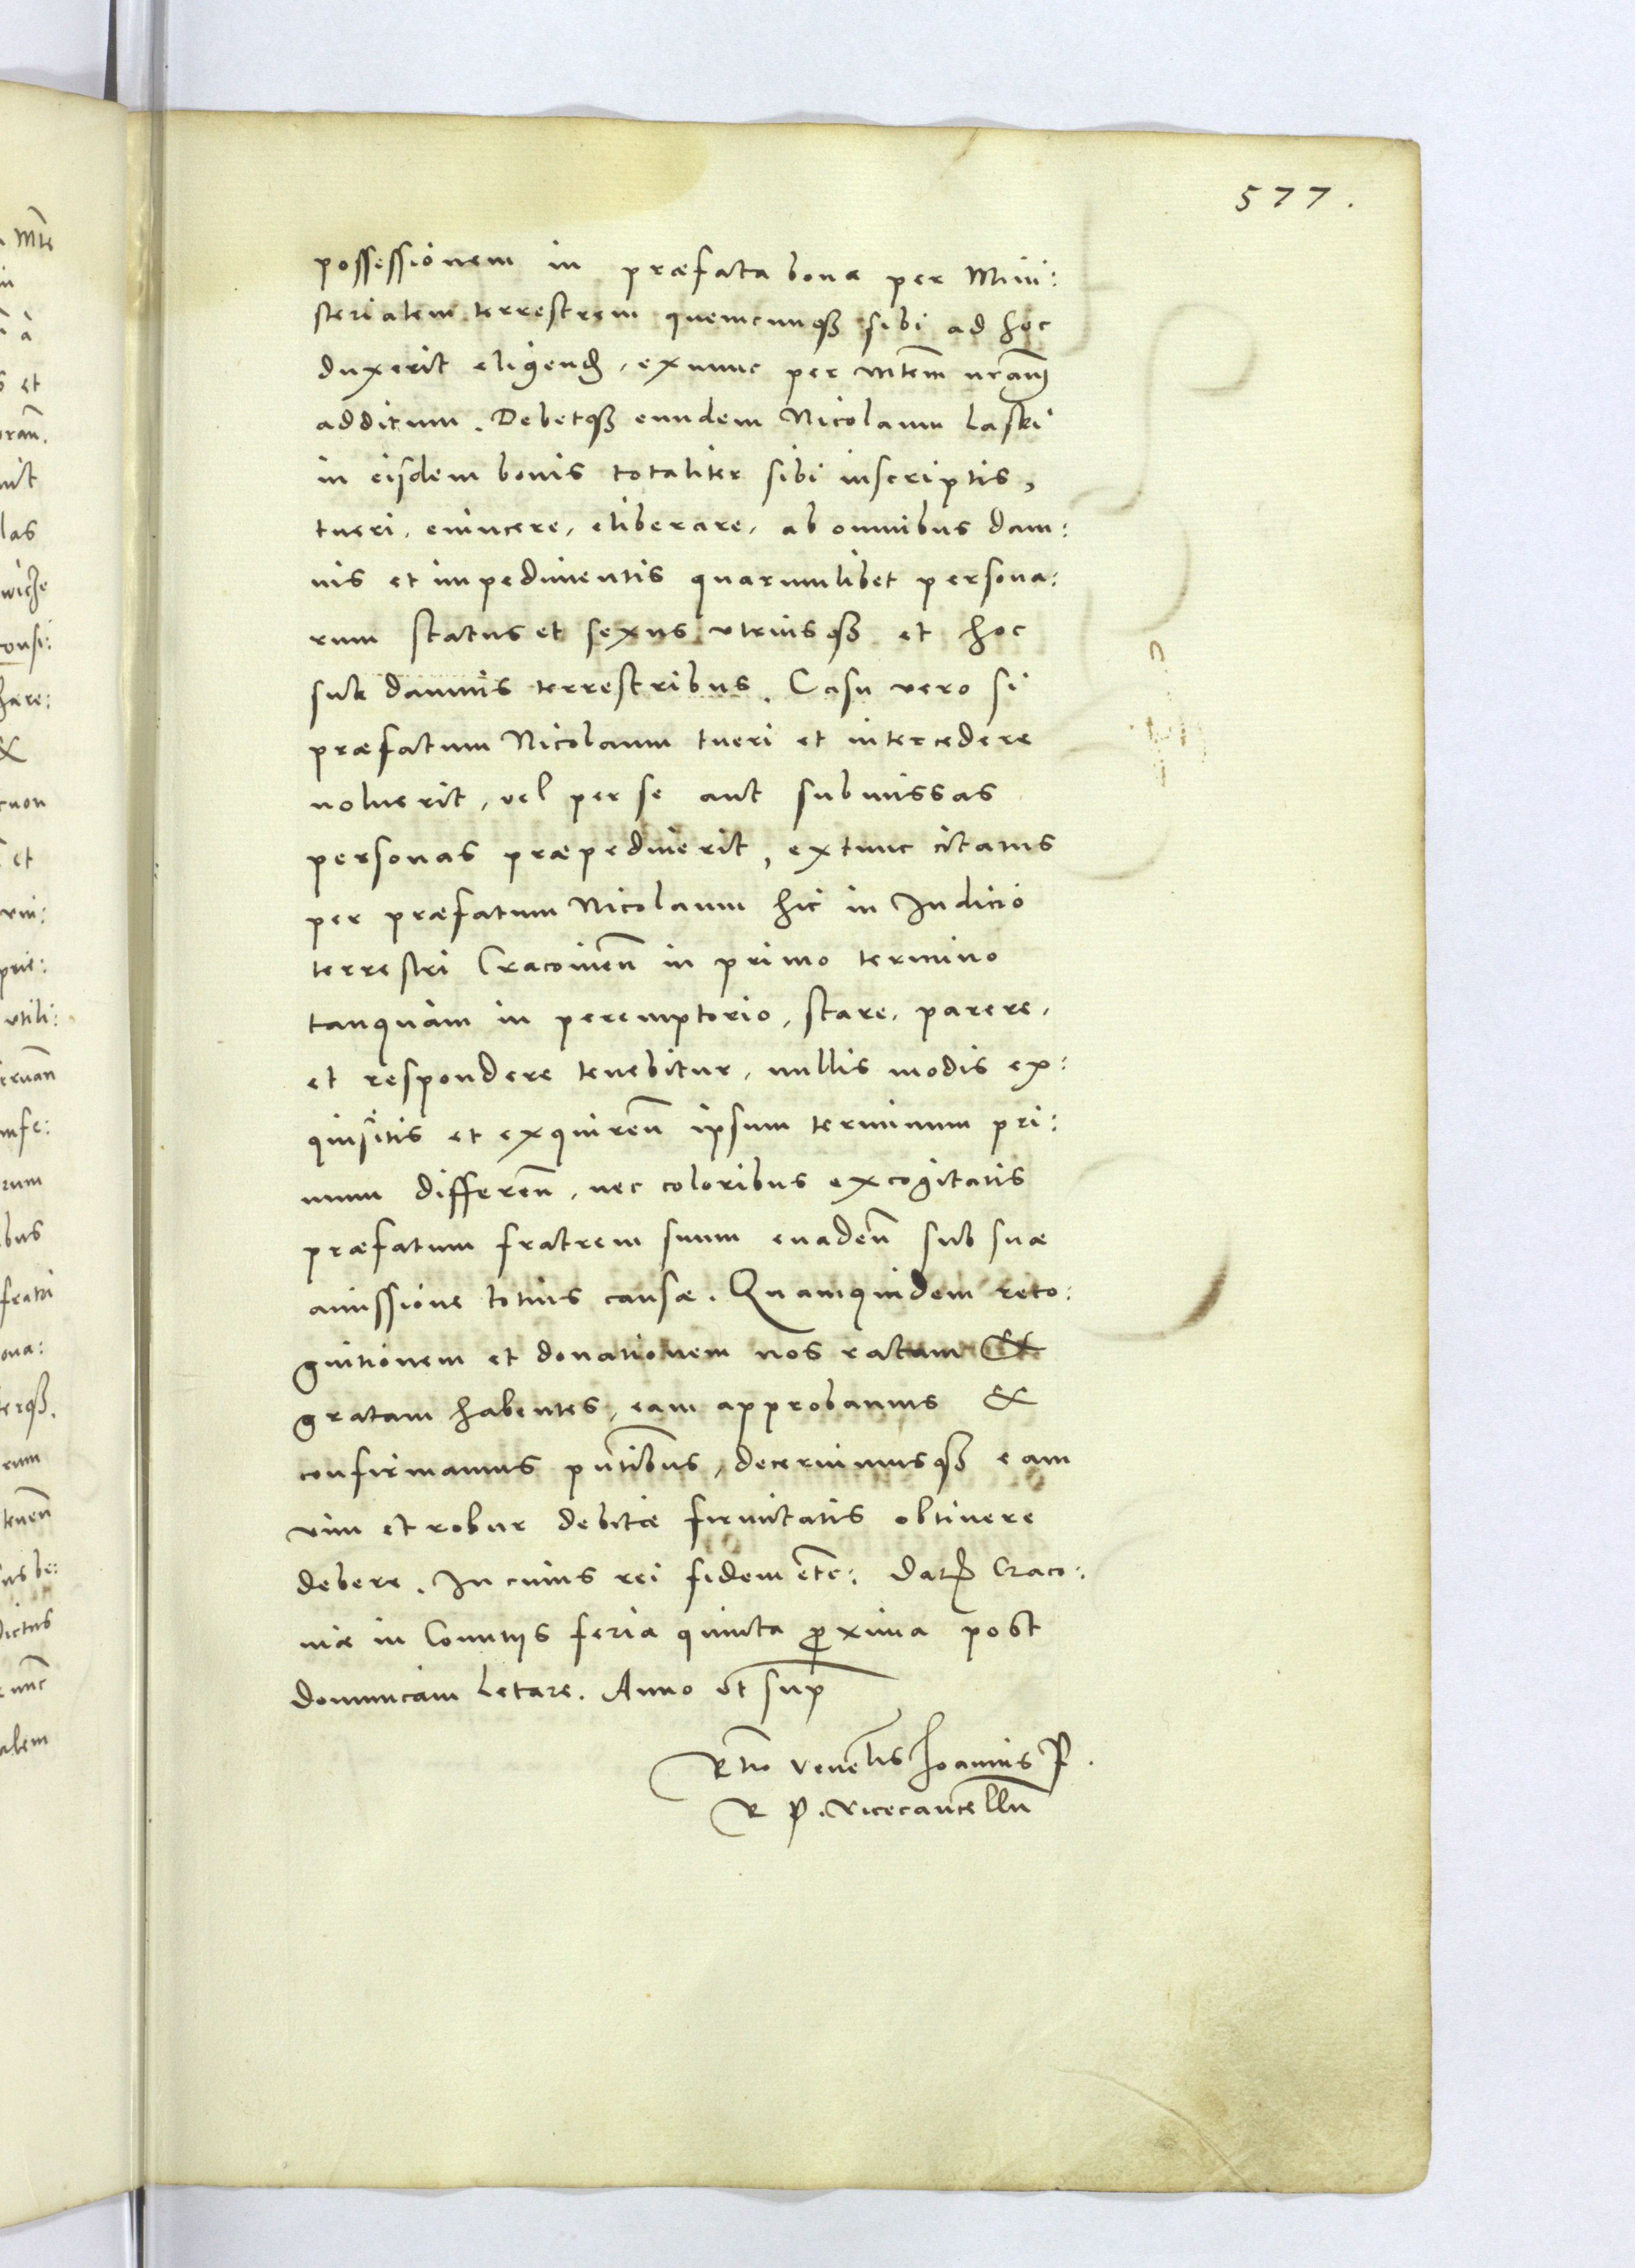 577.
possessionem in præfata bona per Mini:
sterialem terrestrem quemcunqȝ sibi ad hoc
duxerit eligend, ex nunc per Mtem nram
additum. Debetqȝ eundem Nicolaum Laski
in eisdem bonis totaliter sibi inscriptis,
tueri, euincere, eliberare, ab omnibus dam:
nis et impedimentis quarumlibet persona:
rum status et sexus vtriusqȝ et hoc
sub damnis terrestribus. Casu vero si
præfatum Nicolaum tueri et intercedere
noluerit, vel per se aut submissas
personas præpediuerit, extunc citatus
per præfatum Nicolaum hic in Iudicio
terrestri Cracouien in primo termino
tanquam in peremptorio, stare, parere,
et respondere tenebitur, nullis modis ex:
quisitis et exquiren ipsum terminum pri:
mum differen, nec coloribus excogitatis
præfatum fratrem suum euaden sub suæ
amissione totius causæ. Quamquidem reco:
gnitionem et donationem nos ratam &
gratam habentes, eam approbamus &
confirmamus pntibus, decernimusqȝ eam
vim et robur debitæ firmitatis obtinere
debere. In cuius rei fidem etc: Dat Craco:
uiæ in Comitijs feria quinta proxima post
dominicam Letare. Anno vt sup
Rtio Venelis Joannis P.
R P. Vicecancelln